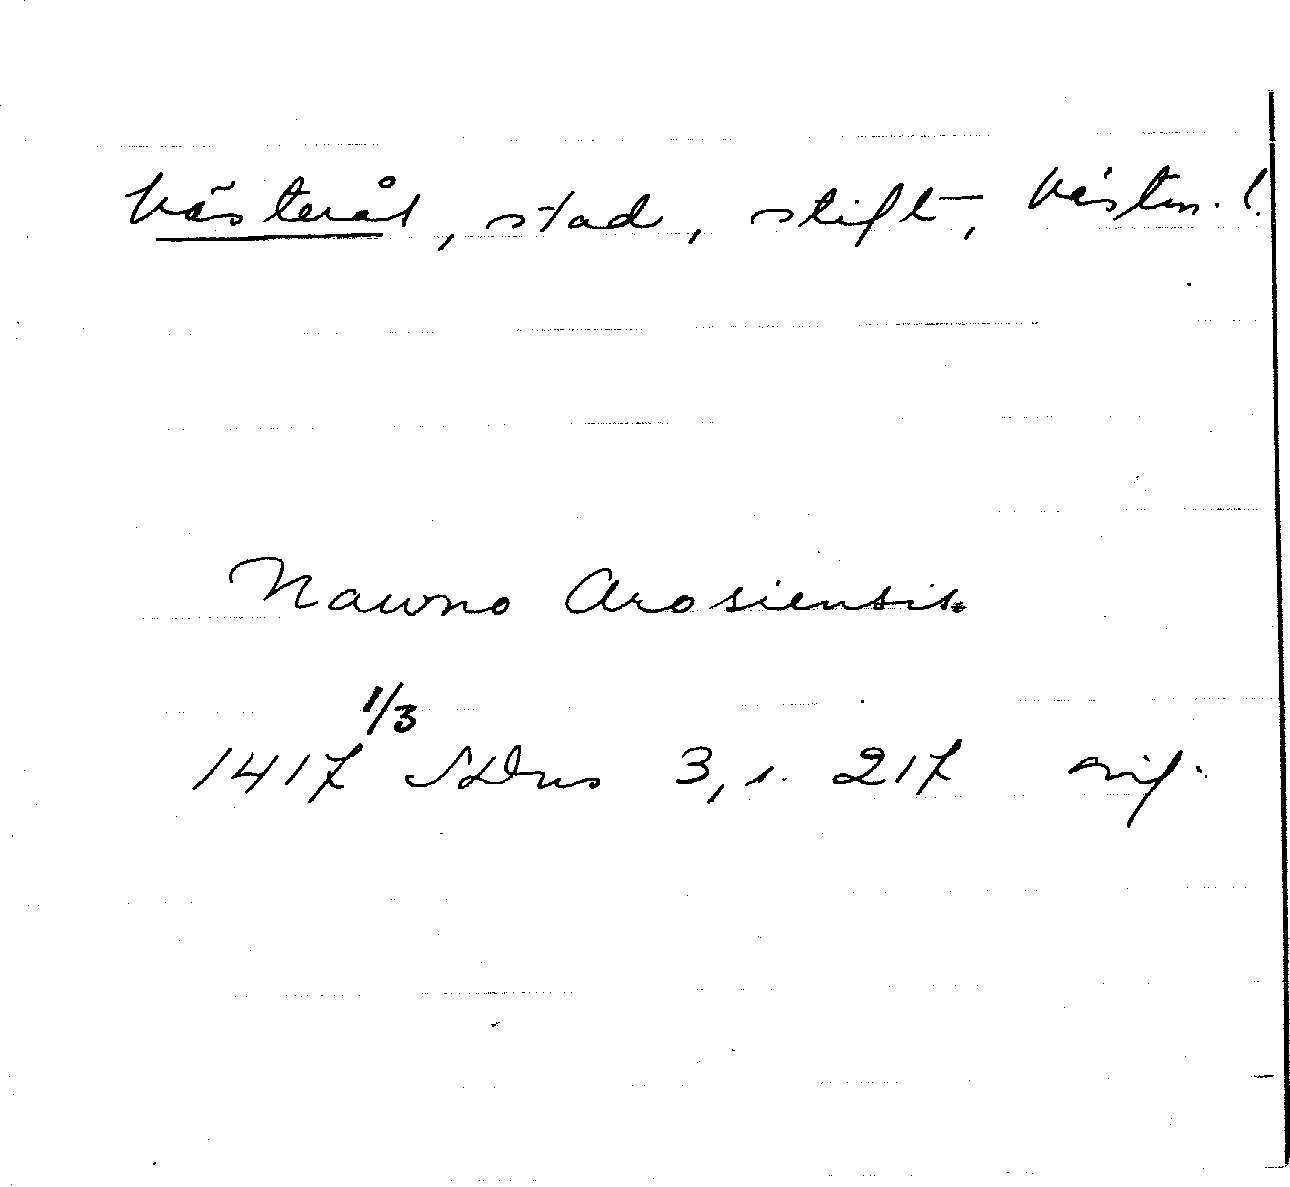 Västerås, stad, stift, Västm. l.
Nawno Arosiensis
1/3
1417 SDns 3, s. 217 avs.